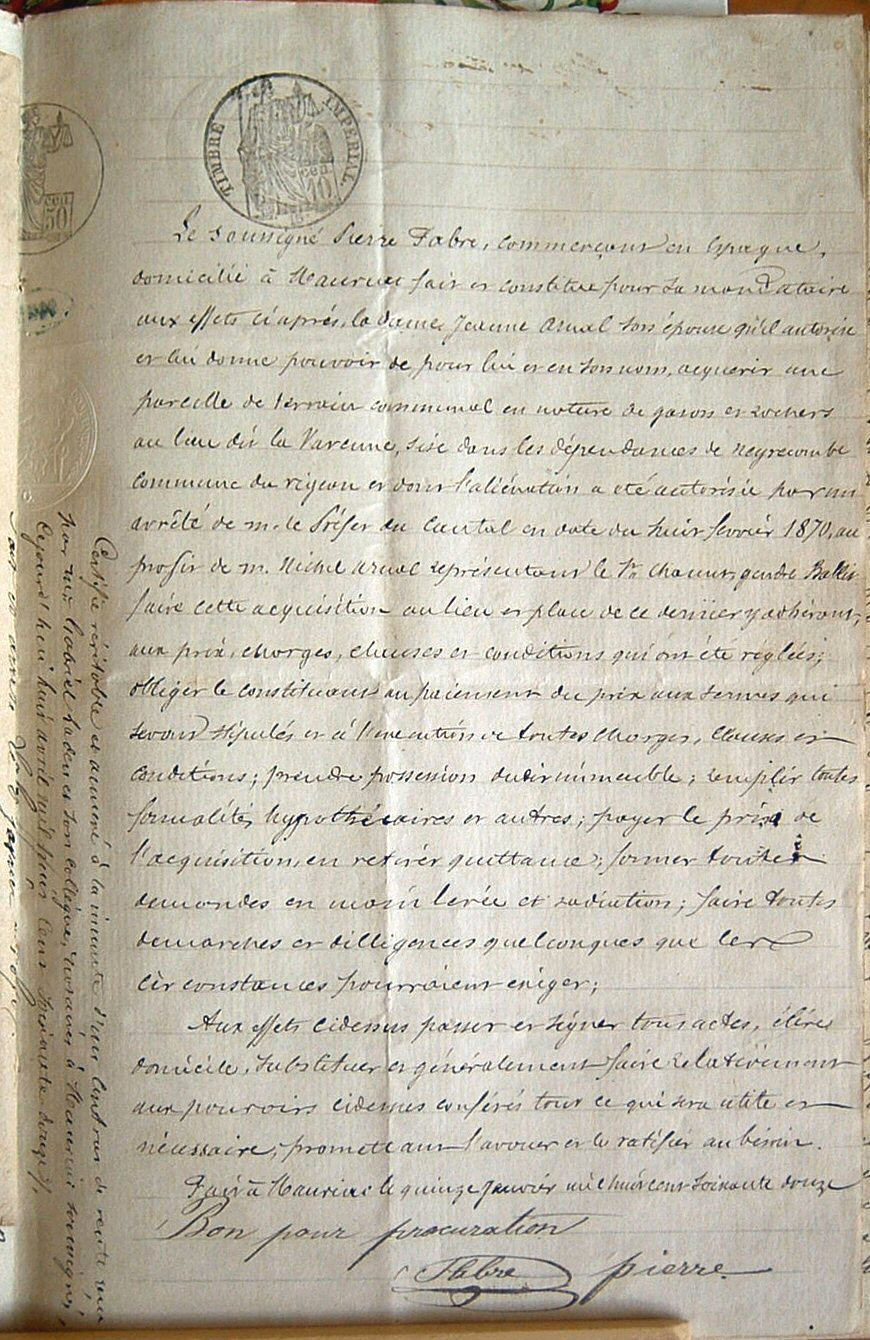 TIMBRE IMPERIAL.
cen 10
cen 50
Le soussigné Pierre Fabre, commerçant en Espagne,
domicilié à Mauriac fait et constitue pour sa mandataire
aux effets ci après, la dame Jeanne Arnal son épouse qu'il autorise
et lui donne pouvoir de pour lui et en son nom, acquerir une
parcelle de terrain communal en nature de gason et rochers
au lieu dit la Varenne, sise dans les dépendances de Neyrecombe
commune du rigeau et dont l'aliénation a été autorisée par un
arrêté de m. le Préfet du Cantal en date du huit fevrier 1870, au
profit de m. Michel Arnal représentant le Sr gendre
faire cette acquisition au lieu et place de ce dernier y adhérant,
aux prix, charges, clauses et conditions qui ont été réglées;
obliger le constituant au paiement du prix aux termes qui
seront stipulés et à l'exécution de toutes charges, clauses et
conditions; prendre possession dudit immeuble; remplir toutes
formalités hypothécaires et autres; payer le prix de
l'acquisition, en retirer quittance; former toutes
demandes en main levée et radiation; faire toutes
demarches et dilligences quelconques que les
circonstances pourraient exiger;
Aux effets cidessus passer et signer tous actes, élire
domicile, substituer et généralement faire relativement
aux pouvoirs cidessus conférés tout ce qui sera utile et
nécessaire, promettant l'avouer et le ratifier au besoin.
Fait à Mauriac le quinze Janvier mil huit cent soixante douze
Bon pour procuration
Fabre pierre
Certifié véritable et annexé à la minute d'un contrat de vente reçu
par Me Gabriel et son collègue, notaires à Mauriac soussignés,
Cejourd'hui huit avril mil huit cent soixante douze